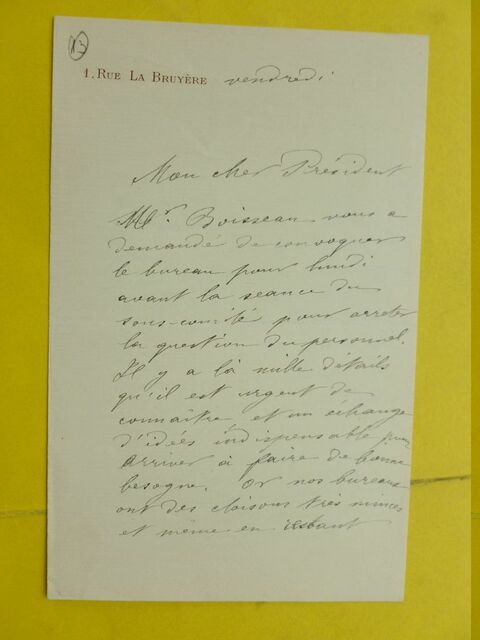 13
1. RUE LA BRUYÈRE vendredi
Mon cher Président
Mr. Boisseau vous a
demandé de convoquer
le bureau pour lundi
avant la séance du
sous-comité pour arrêter
la question du personnel.
Il y a là mille détails
qu'il est urgent de
connaître et un échange
d'idées indispensable pour
arriver à faire de bonne
besogne. Or nos bureaux
ont des cloisons très minces
et même en restant